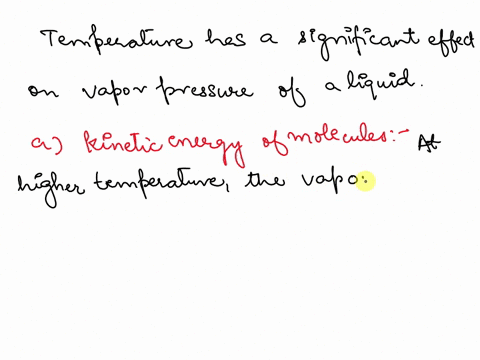 Temperature has a significant effect
on vapor pressure of a liquid.
a) kinetic energy of molecules:- At
higher temperature, the vapo